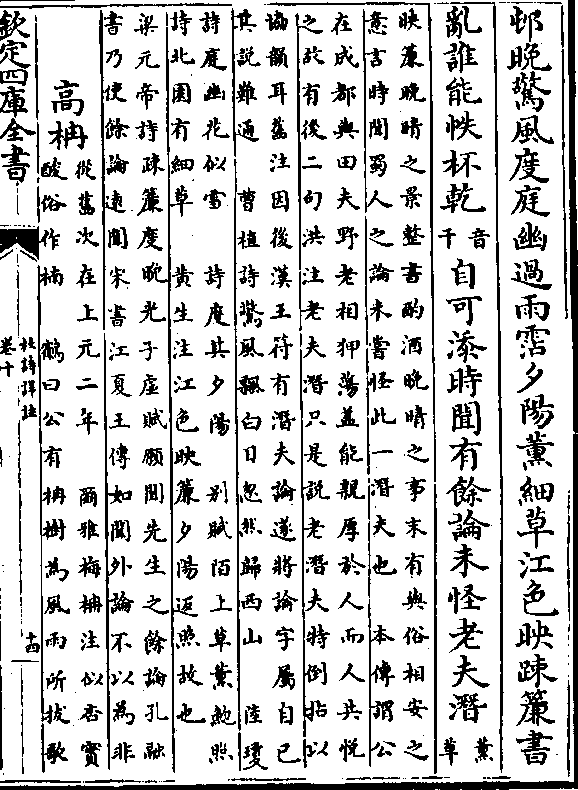 邨晚驚風度庭幽過雨霑夕陽薰細草江色映疎簾書
亂誰能帙杯乾音干自可添時聞有餘論未怪老夫潛薰草
映簾晚晴之景整書酌酒晚晴之事末有與俗相安之
意言時聞蜀人之論未嘗怪此一潛夫也 本傳謂公
在成都與田夫野老相狎蕩蓋能親厚於人而人共悅
之故有後二句洪注老夫潛只是說老潛夫特倒拈以
協韻耳舊注因後漢王符有潛夫論遂將論字屬自己
其說難通 曹植詩驚風飄白日忽然歸西山 陸瓊
詩庭幽花似雪 詩度其夕陽 别賦陌上草薰鮑照
詩北園有細草 黄生注江色映簾夕陽返照故也
梁元帝詩疎簾度晚光子虛賦願聞先生之餘論孔融
書乃使餘論遠聞宋書江夏王傳如聞外論不以為非
高柟從舊次在上元二年 爾雅梅柟注似杏實
酸俗作楠 鶴曰公有柟樹為風雨所拔歌
欽定四庫全書
杜詩詳註
卷十
十四